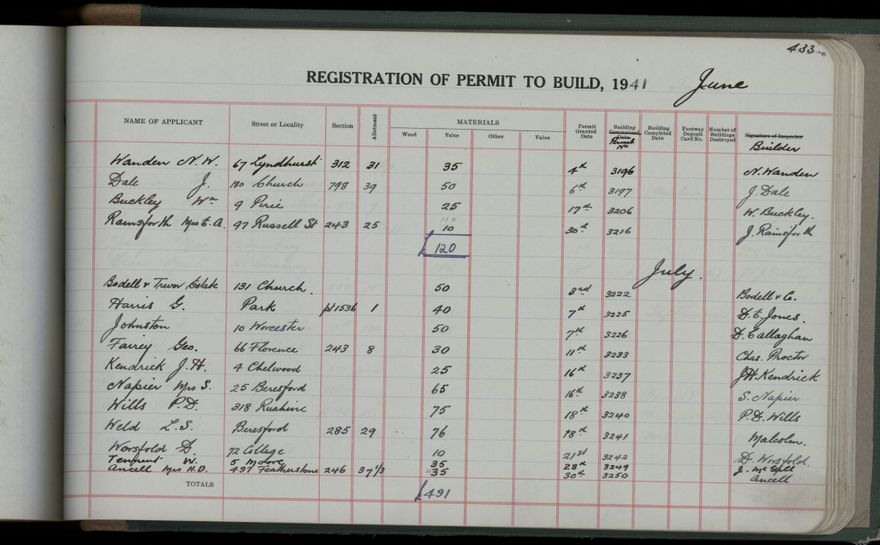 433
REGISTRATION OF PERMIT TO BUILD, 1941 June
NAME OF APPLICANT Street or Locality Section Allotment MATERIALS Wood Value Other Value Permit Granted Date Building Permit No Building Completed Date Footway Deposit Card No. Number of Buildings Destroyed Signature of Inspector Builder
Wanden N. W. 67 Lyndhurst 312 31 35 4th 3196 N. Wanden
Dale J. 180 Church 798 39 50 6th 3197 J Dale
Buckley Wm 9 Pirie 25 17th 3206 W. Buckley.
Rainsforth Mrs E. A. 97 Russell St 243 25 10 30th 3216 J. Rainsforth
£ 120
July.
Bodell & Trevor Estate 131 Church. 50 3rd 3222 Bodell & Co.
Harris G. Park pt 1536 1 40 7th 3225 D. E. Jones.
Johnston 10 Worcester 50 7th 3226 D. Callaghan
Fairey Geo. 66 Florence 243 8 30 11th 3233 Chas. Proctor
Kendrick J. H. 4 Chelwood 25 16th 3237 J H Kendrick
Napier Mrs S. 25 Beresford 65 16th 3238 S. Napier
Wills P. D. 318 Ruahine 75 18th 3240 P. D. Wills
Weld L. S. Beresford 285 29 76 18th 3241 Malcolm.
Worsfold D. 72 College 10 21st 3242 D. Worsfold.
Tennent W. 5 Moore 35 28th 3249 J. McGill
Ancell Mrs H. D. 497 Featherstone 246 37 1/3 35 30th 3250 Ancell
TOTALS £ 491